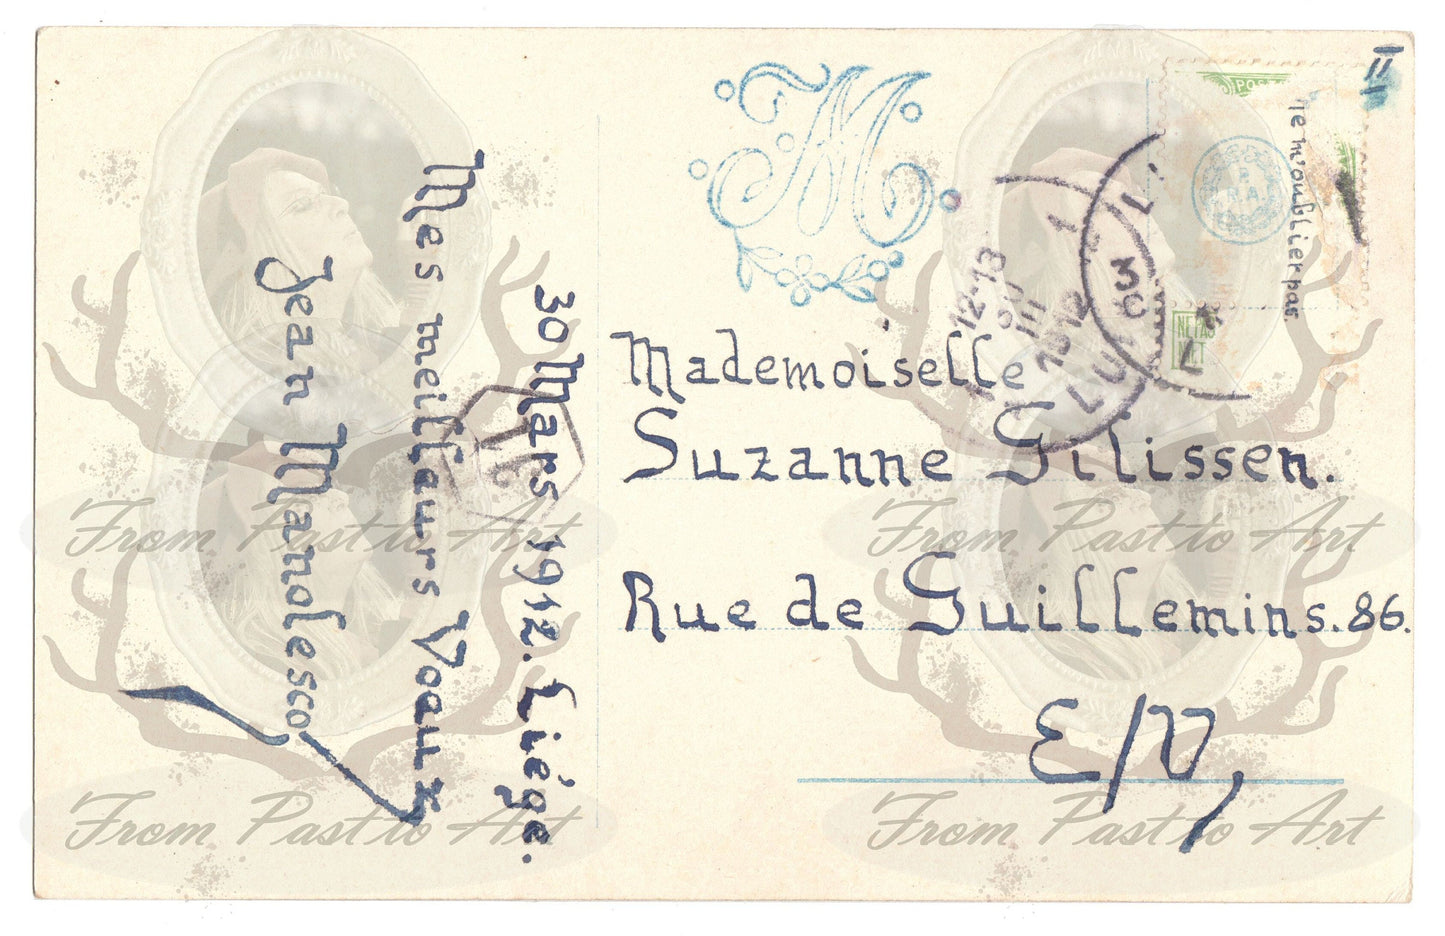 30 Mars 1912. Liége.
Mes meilleurs Voeux
Jean Manolesco
M
Mademoiselle
Suzanne Gilissen.
Rue de Guillemins. 86.
E/V,
ne m'oublier pas
POST
R
R.A.
NE PAS
12-13
30
III
1912
30
II
From Past to Art
From Past to Art
From Past to Art
From Past to Art